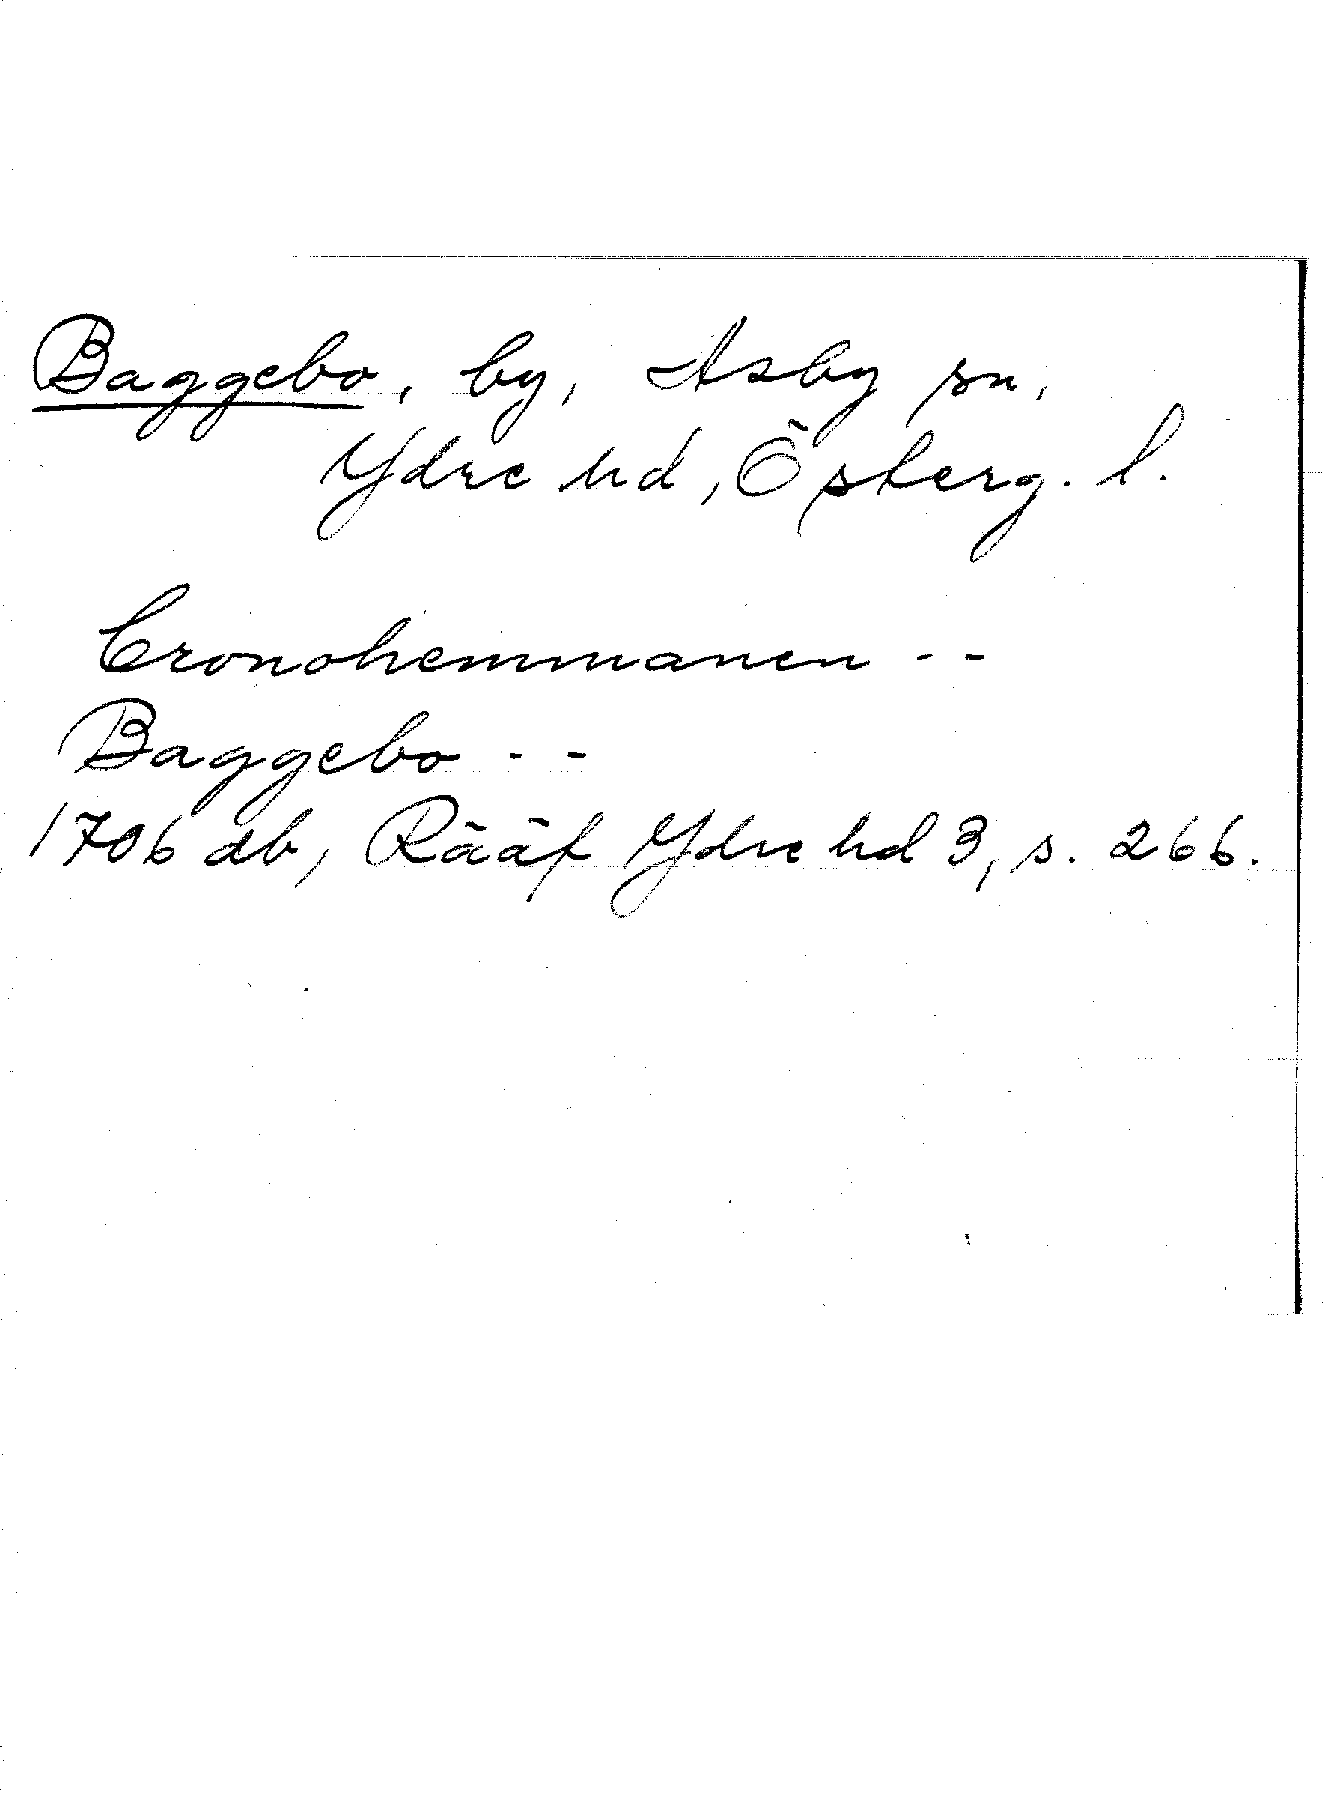 Baggebo, by, Asby sn,
Ydre hd, Österg. l.
Cronohemmanen --
Baggebo --
1706 db, Rääf Ydre hd 3, s. 266.